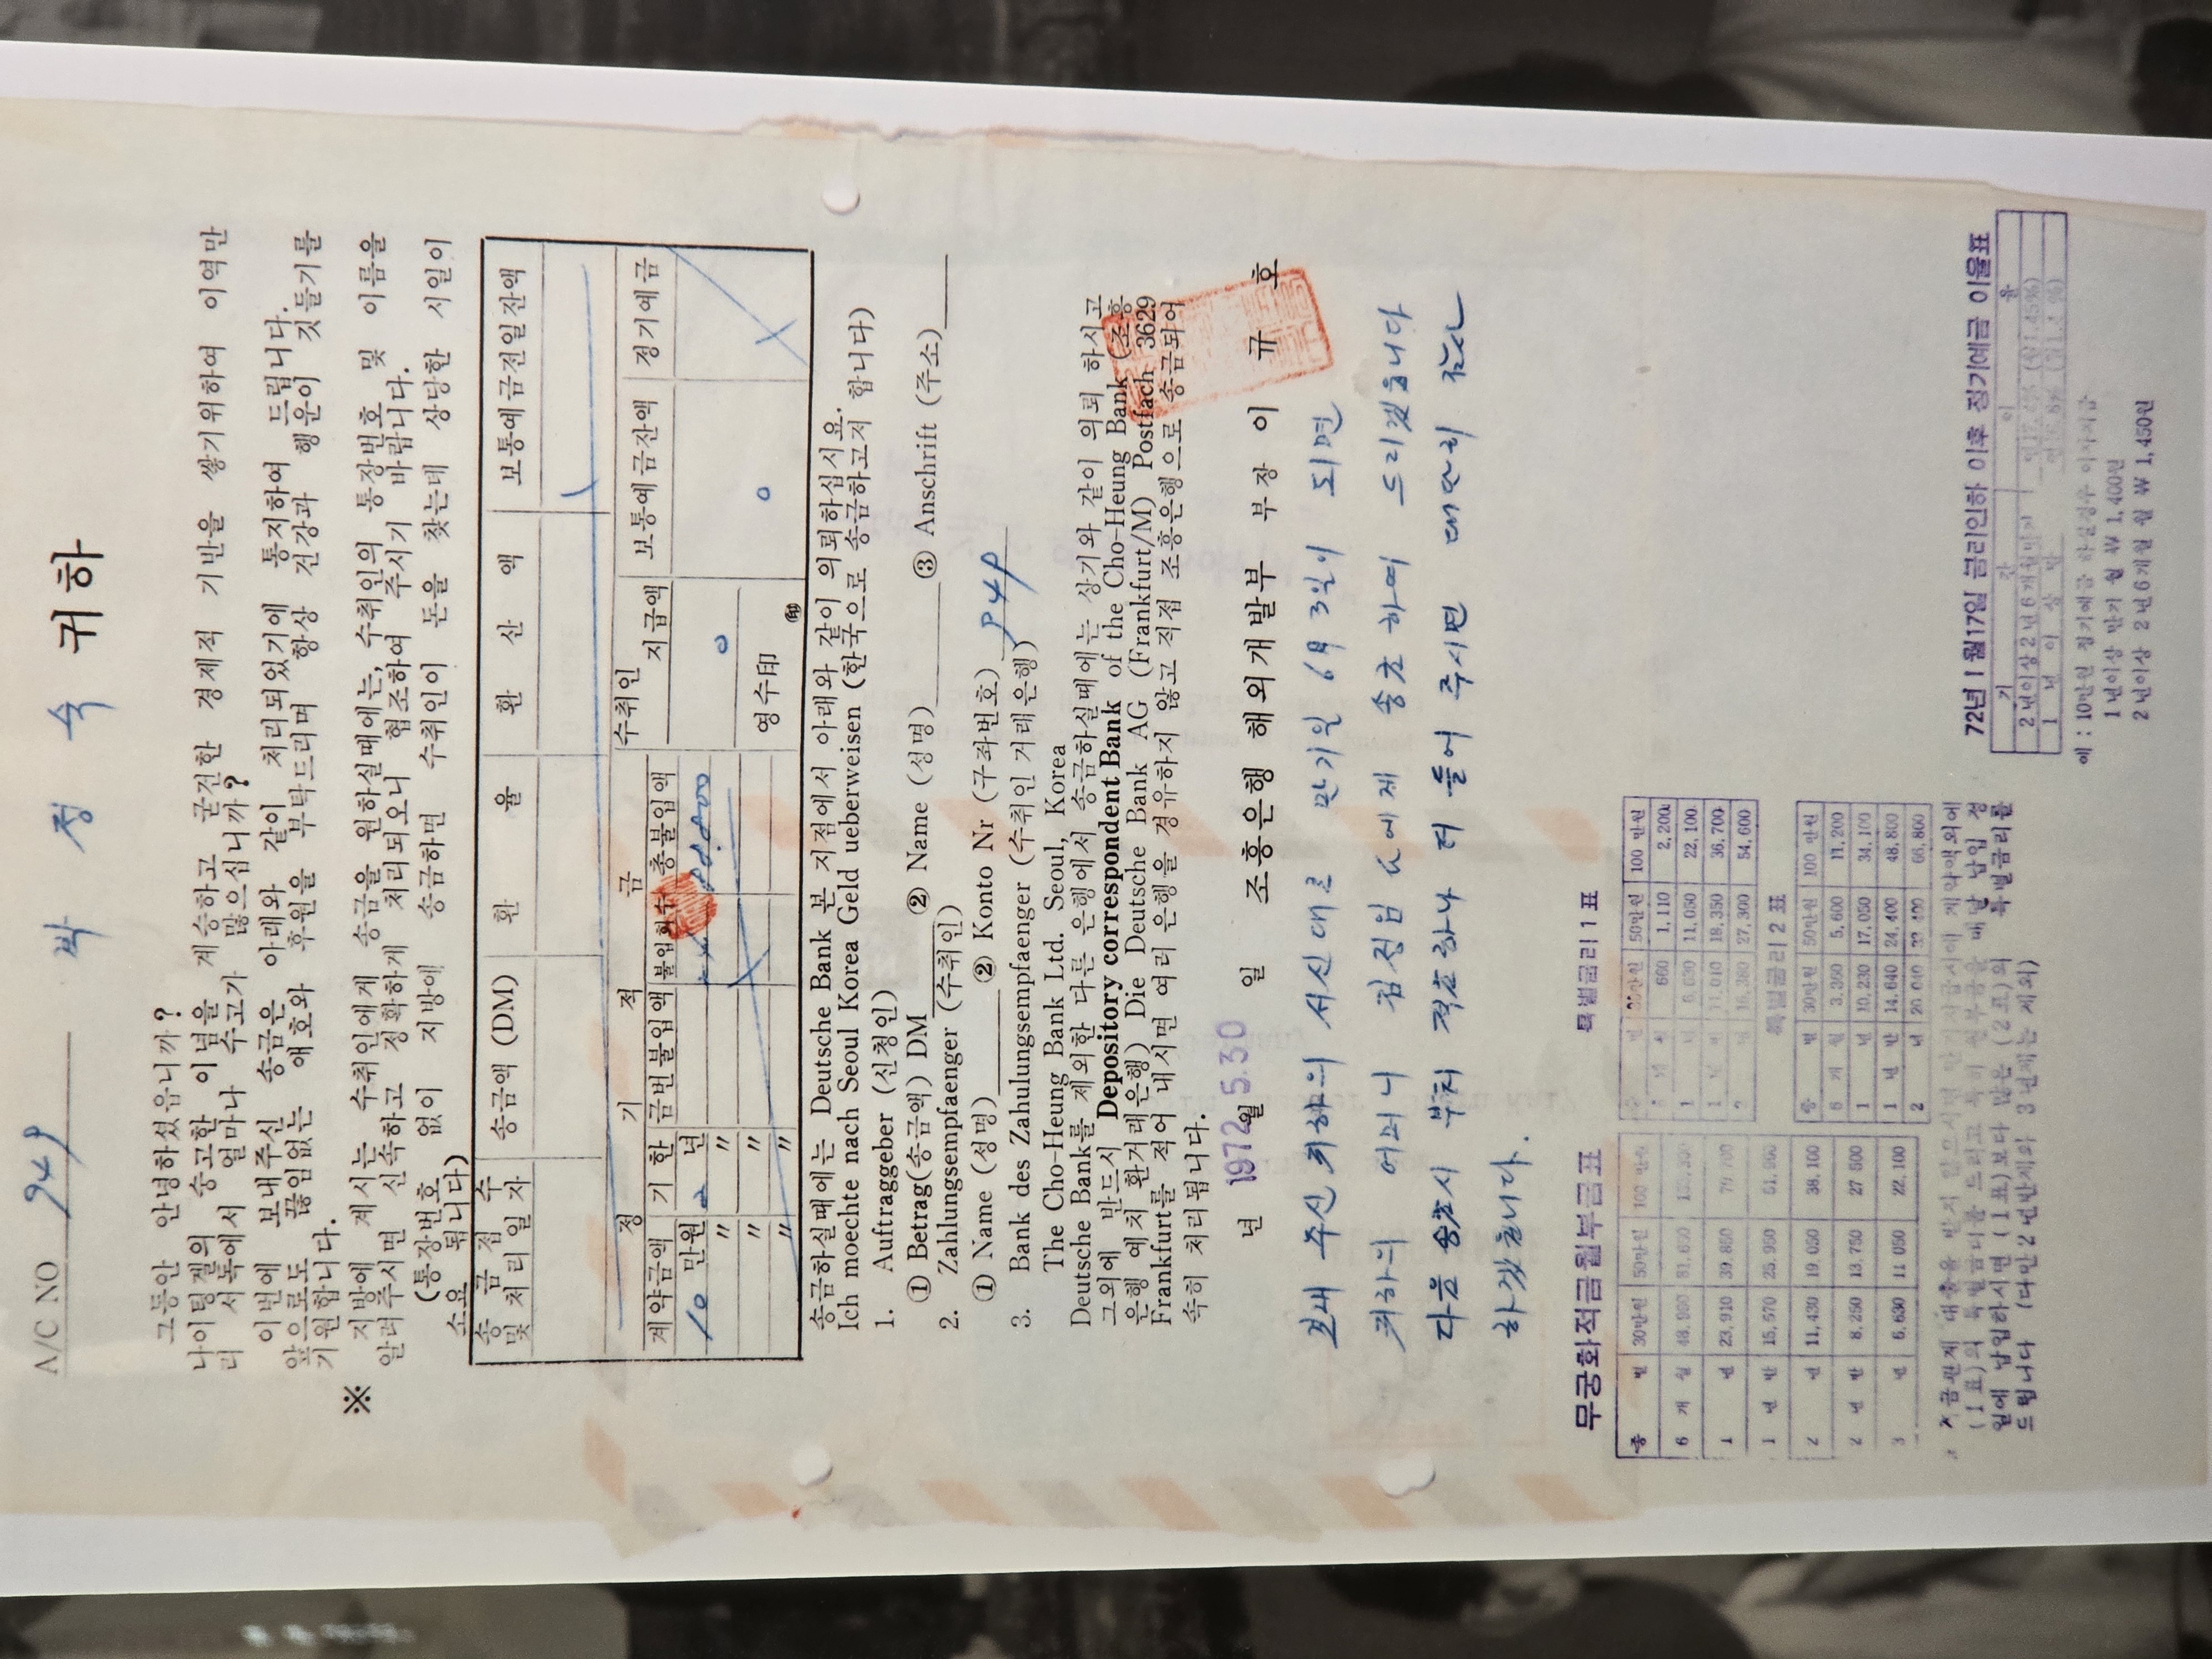 A/C NO 949
박 정 숙 귀하
그동안 안녕하셨읍니까?
나이팅겔의 숭고한 이념을 계승하고 굳건한 경제적 기반을 쌓기위하여 이역만
리 서독에서 얼마나 수고가 많으십니까?
이번에 보내주신 송금은 아래와 같이 처리되었기에 통지하여 드립니다.
앞으로도 끊임없는 애호와 후원을 부탁드리며 항상 건강과 행운이 깃들기를
기원합니다.
※ 지방에 계시는 수취인에게 송금을 원하실때에는, 수취인의 통장번호 및 이름을
알려주시면 신속하고 정확하게 처리되오니 협조하여 주시기 바랍니다.
(통장번호 없이 지방에 송금하면 수취인이 돈을 찾는데 상당한 시일이
소요 됩니다)
송금접수 및 처리일자 송금액 (DM) 환 율 환 산 액 보통예금전일잔액
정 기 적 금 수취인
계약금액 기 한 금번불입액 불입회수 총불입액 지급액 보통예금잔액 정기예금
10 만원 2 년 0 0
〃 〃
〃 〃 영수印 ㊞
송금하실때에는 Deutsche Bank 본 지점에서 아래와 같이 의뢰하십시요.
Ich moechte nach Seoul Korea Geld ueberweisen (한국으로 송금하고저 합니다)
1. Auftraggeber (신청인)
① Betrag(송금액) DM ② Name (성명) ③ Anschrift (주소)
2. Zahlungsempfaenger (수취인)
① Name (성명) ② Konto Nr (구좌번호) 949
3. Bank des Zahulungsempfaenger (수취인 거래은행)
The Cho-Heung Bank Ltd. Seoul, Korea
Deutsche Bank를 제외한 다른 은행에서 송금하실때에는 상기와 같이 의뢰 하시고
그외에 반드시 Depository correspondent Bank of the Cho-Heung Bank (조흥
은행 예치 환거래은행) Die Deutsche Bank AG (Frankfurt/M) Postfach 3629
Frankfurt를 적어 내시면 여러 은행을 경유하지 않고 직접 조흥은행으로 송금되어
속히 처리 됩니다.
년 1972 월 5.30 일 조흥은행 해외개발부 부장 이 규 호
보내 주신 귀하의 서신대로 만기일 6月 3일이 되면
귀하의 어머니 김정임 氏에게 송금하여 드리겠읍니다
다음 송금시 부터 적금 하나 더 들어 주시면 대단히 감사
하겠읍니다.
무궁화적금월부금표
종 별 30만원 50만원 100 만원
6 개 월 48,990 81,650
1 년 23,910 39,850
1 년 반 15,570 25,950
2 년 11,430 19,050 38,100
2 년 반 8,250 13,750 27,500
3 년 6,630 11,050 22,100
특별금리 1 표
50만원 100 만원
660 1,110 2,200
1 년 6,630 11,050 22,100
11,010 18,350 36,700
16,380 27,300 54,600
특별금리 2 표
종 별 30만원 50만원 100 만원
6 개 월 3,360 5,600 11,200
1 년 10,230 17,050 34,100
1 년 반 14,640 24,400 48,800
2 년 20,040 33,400 66,800
(1표)의 특별금리를 드리고
월에 납입하시면 (1표)보다 많은 (2표)의 특별금리를
드립니다 (다만 2년반제와 3년제는 제외)
72년 1월17일 금리인하 이후 정기예금 이율표
기 간 이 율
2년이상2년6개월까지
1 년 이 상
예 : 10만원 정기예금 하실경우 이자지급
1년이상 만기 월 ₩ 1,400원
2년이상 2년6개월 월 ₩ 1,450원